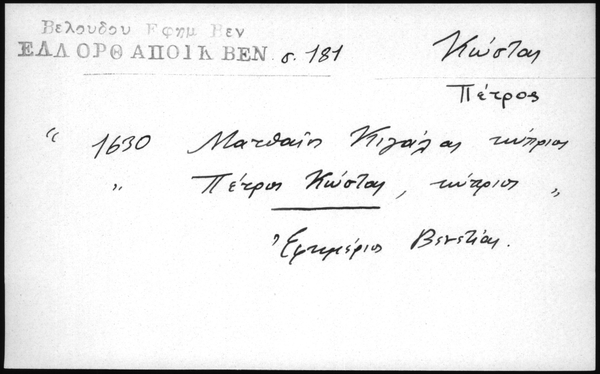 Βελουδου Εφημ Βεν
ΕΛΛ ΟΡΘ ΑΠΟΙΚ ΒΕΝ σ. 181
Κώστας
Πέτρος
" 1630 Ματθαῖος Κιγάλας κύπριος
" Πέτρος Κώστας, κύπριος "
Ἐφημέριος Βενετίας.